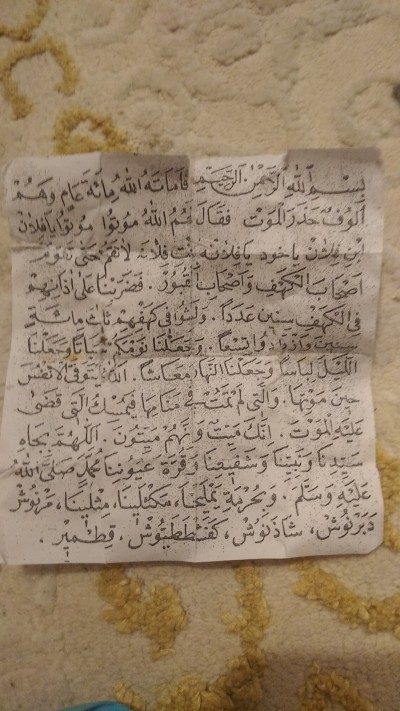 بِسْمِ اللهِ الرَّحْمٰنِ الرَّحِيْمِ فَاَمَاتَهُ اللهُ مِائَةَ عَامٍ وَهُمْ
اُلُوْفٌ حَذَرَ الْمَوْتِ فَقَالَ لَهُمُ اللهُ مُوْتُوْا مُوْتُوْا يَا فُلَانْ
ابْنِ فُلَانْ يَا خُود يَا فُلَانَه بِنْتِ فُلَانَه لَا تَقُمْ حَتّٰى تَقُوْمَ
اَصْحَابَ الْكَهْفِ وَاَصْحَابِ الْقُبُوْرْ . فَضَرَبْنَا عَلٰى اٰذَانِهِمْ
فِى الْكَهْفِ سِنِيْنَ عَدَدًا . وَلَبِثُوْا فِى كَهْفِهِمْ ثَلٰثَ مِائَةٍ
سِنِيْنَ وَازْدَادُوْا تِسْعًا . وَجَعَلْنَا نَوْمَكُمْ سُبَاتًا وَجَعَلْنَا
الَّيْلَ لِبَاسًا وَجَعَلْنَا النَّهَارَ مَعَاشًا . اَللهُ يَتَوَفَّى الْاَنْفُسَ
حِيْنَ مَوْتِهَا، وَالَّتِى لَمْ تَمُتْ فِى مَنَامِهَا فَيُمْسِكُ الَّتِى قَضٰى
عَلَيْهِ الْمَوْتَ . اِنَّكَ مَيِّتٌ وَاِنَّهُمْ مَيِّتُوْنَ . اَللّٰهُمَّ بِجَاهِ
سَيِّدِنَا وَنَبِيِّنَا وَشَفِيْعِنَا وَقُرَّةِ عُيُوْنِنَا مُحَمَّدٍ صَلَّى اللهُ
عَلَيْهِ وَسَلَّمَ . وَبِحُرْمَةِ يَمْلِيْخَا، مَكْثَلِيْنَا، مِثْلِيْنَا، مَرْنُوْشْ
دَبَرْنُوْشْ، شَاذَنُوْشْ، كَفَشْطَطَيُّوْشْ، قِطْمِيْر .